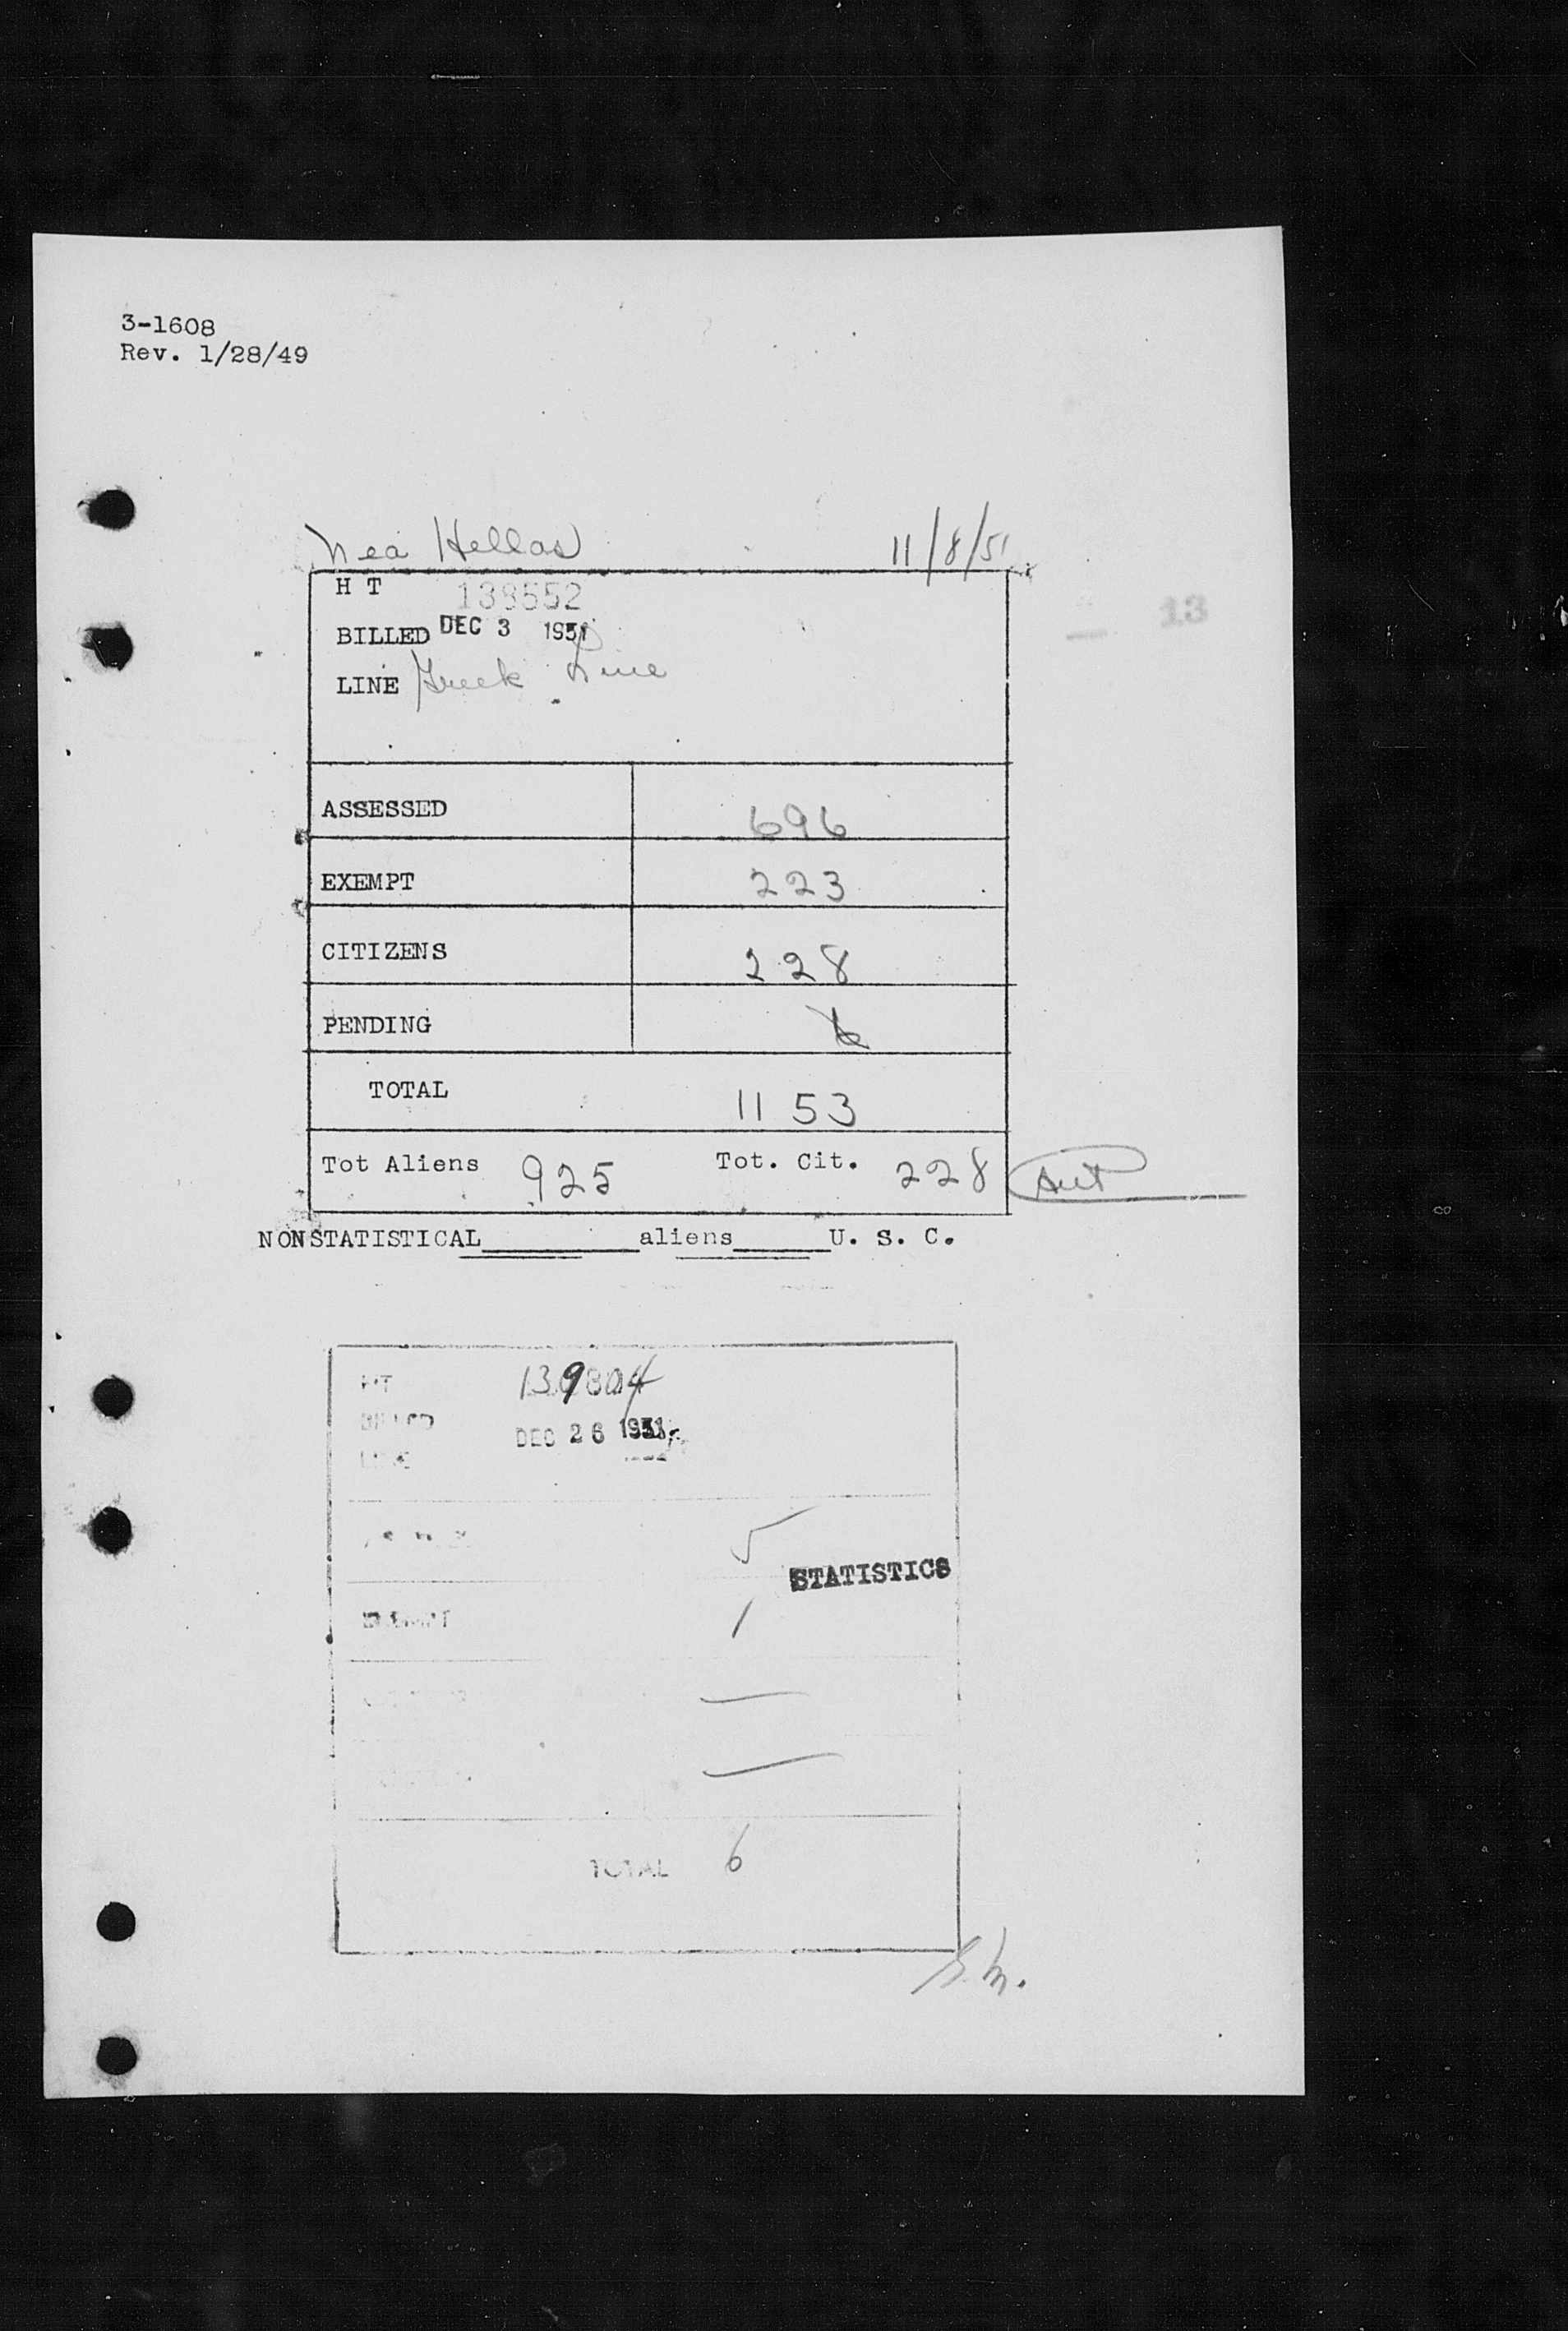 3-1608
Rev. 1/28/49
Nea Hellas 11/8/51
13
H T 138552
BILLED DEC 3 1951
LINE Greek Line
ASSESSED 696
EXEMPT 223
CITIZENS 228
PENDING 6
TOTAL 1153
Tot Aliens 925 Tot. Cit. 228
NONSTATISTICAL aliens U. S. C.
HT 139804
BILLED DEC 26 1951
LINE
5
STATISTICS
EXEMPT 1
—
—
TOTAL 6